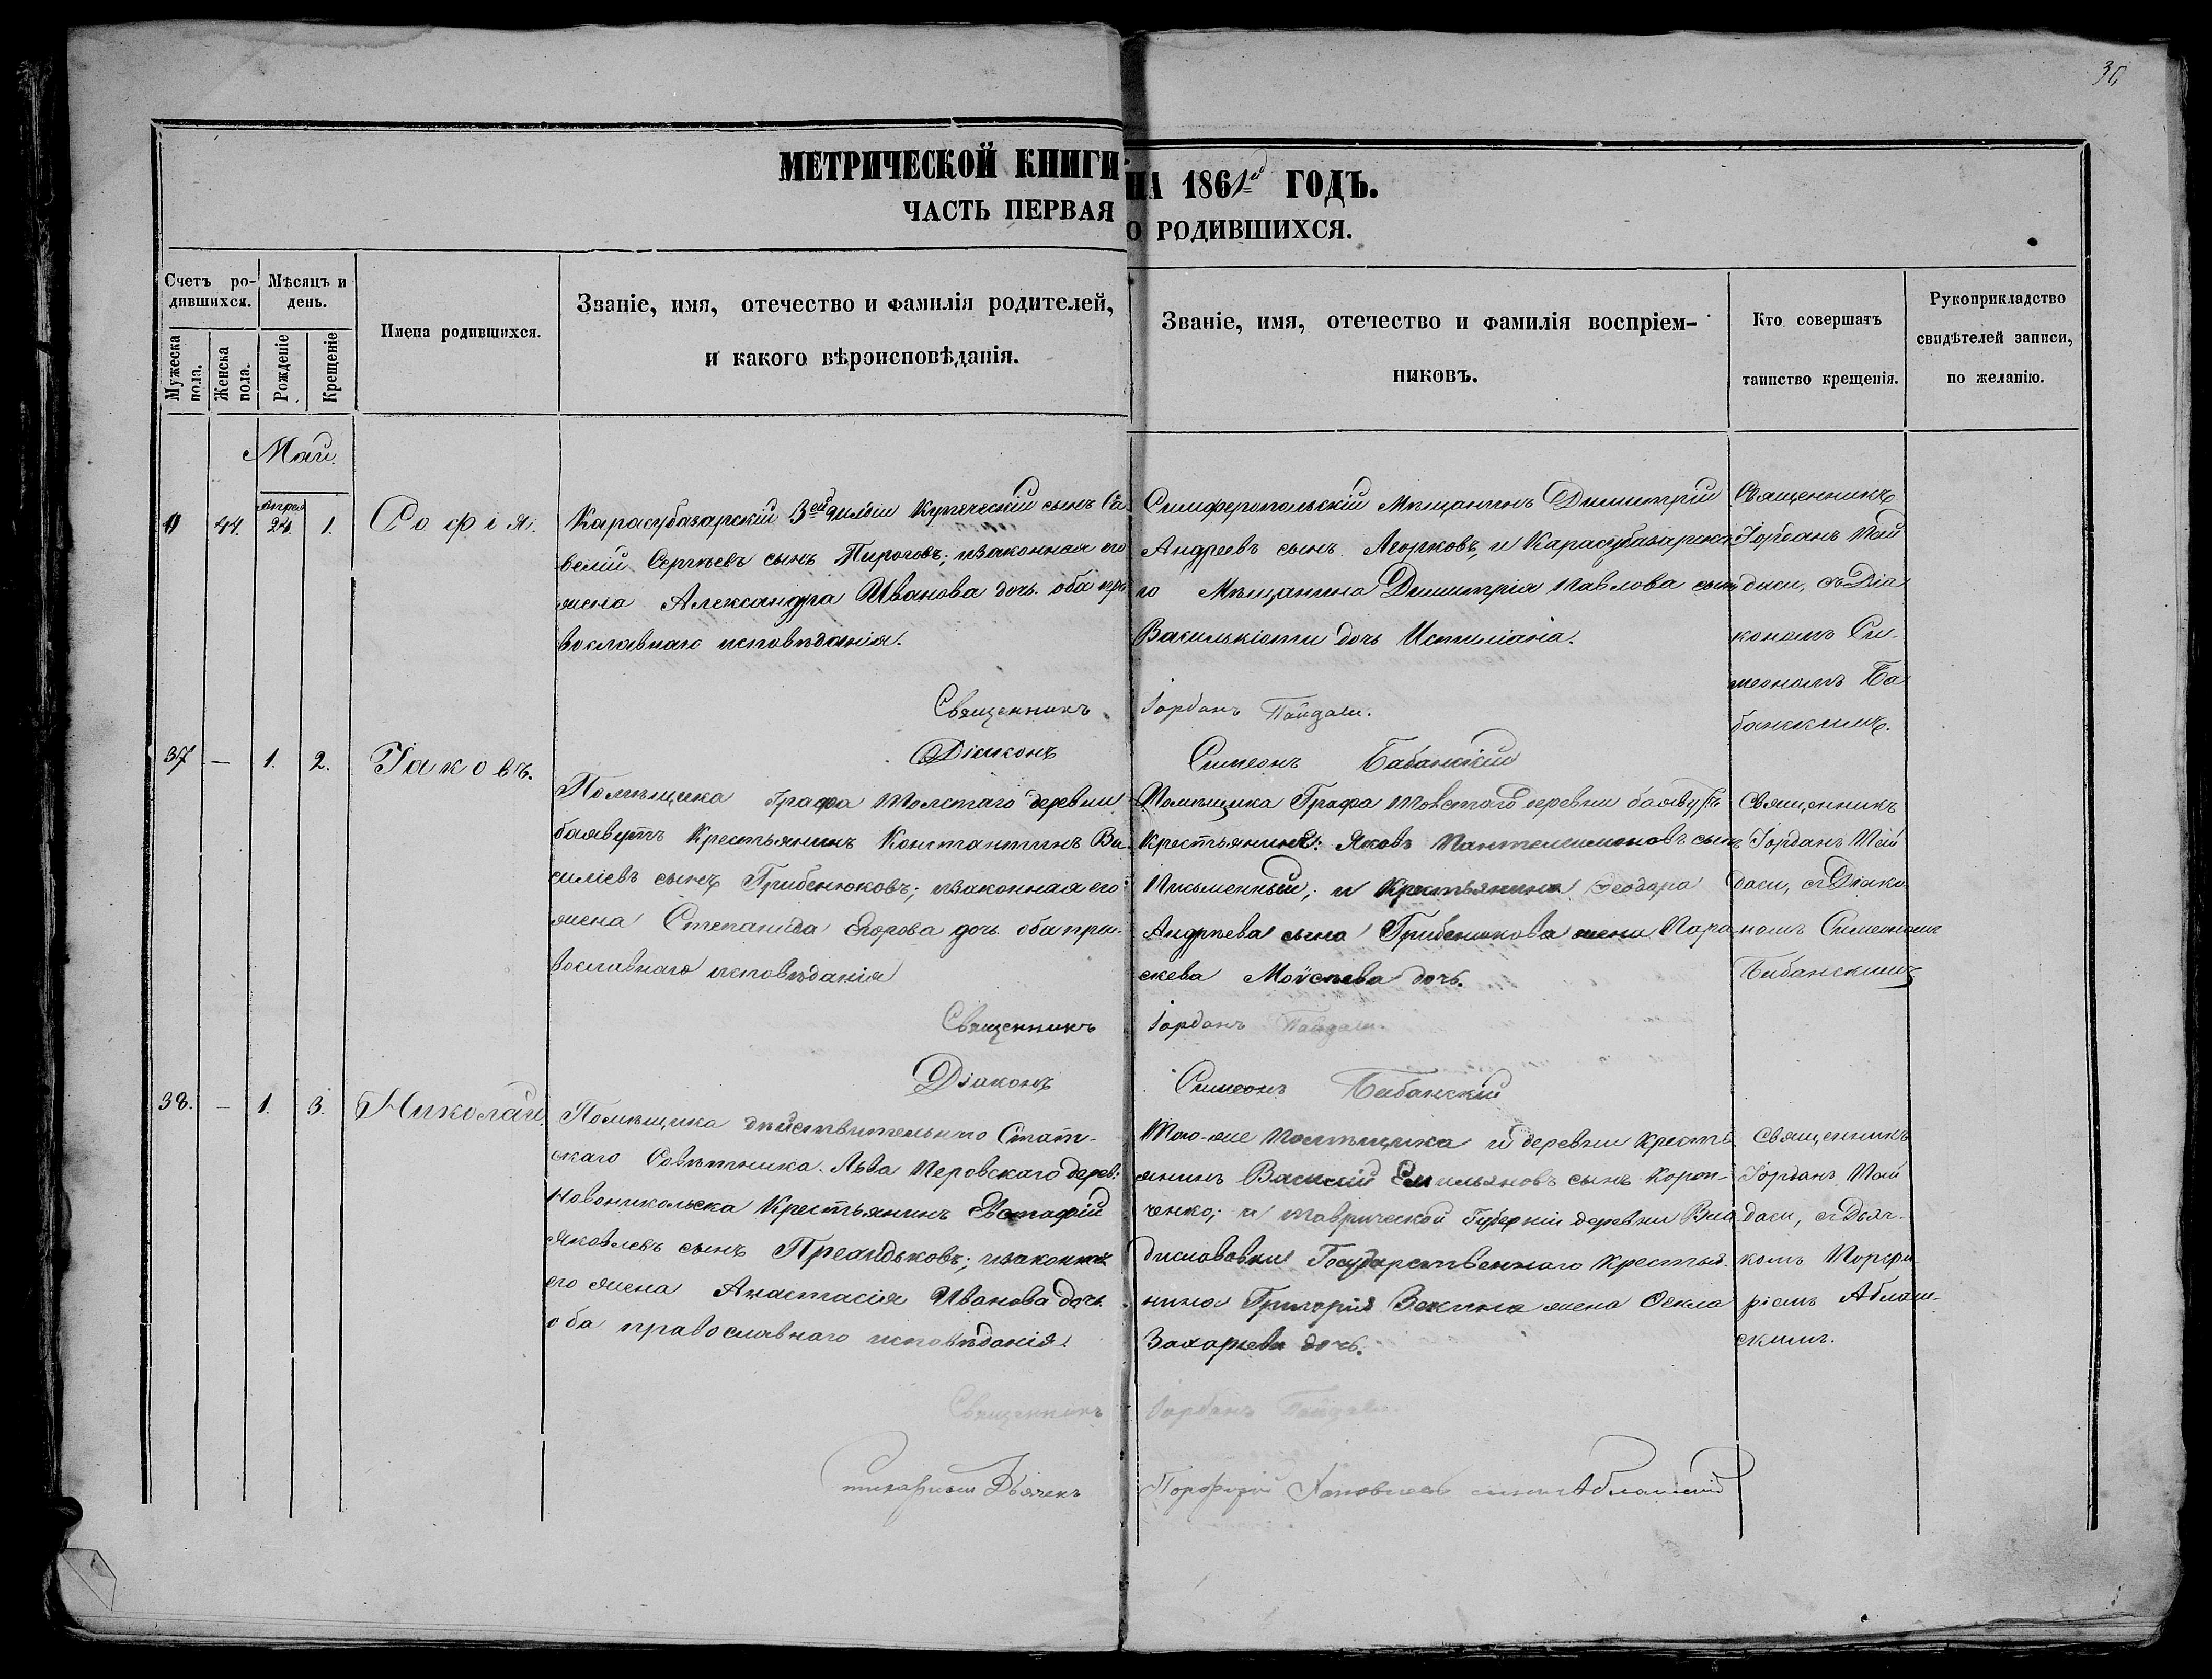 30
МЕТРИЧЕСКОЙ КНИГИ НА 1861й ГОДЪ.
ЧАСТЬ ПЕРВАЯ О РОДИВШИХСЯ.
Счетъ ро-
дившихся.
Мужеска пола.
Женска пола.
Мѣсяцъ и
день.
Рожденіе
Крещеніе
Имена родившихся.
Званіе, имя, отечество и фамилія родителей,
и какого вѣроисповѣданія.
Званіе, имя, отечество и фамилія воспріем-
никовъ.
Кто совершатъ
таинство крещенія.
Рукоприкладство
свидѣтелей записи,
по желанію.
Май.
44. Апреля 24. 1.
Софія.
Карасубазарскій 3ей гильдіи Купеческій сынъ Са
велій Сергѣевъ сынъ Пироговъ; изаконная его
жена Александра Иванова дочь. оба пра
вославнаго исповѣданія.
Симферопольскій Мѣщанинъ Димитрій
Андреевъ сынъ и Карасубазарска
го Мѣщанина Димитрія Павлова сына
дочь
Священникъ
Іорданъ Пай
даси, съ Діа
кономъ Си-
меономъ Ба
банскимъ.
Священникъ Іорданъ Пайдаси.
Діаконъ Симеонъ Бабанскій
37 — 1. 2.
Іаковъ.
Помѣщика Графа Толстаго деревни
баявутъ Крестьянинъ Константинъ Ва-
силіевъ сынъ Грибенюковъ; изаконная его
жена Степанида Егорова дочь оба пра-
вославнаго исповѣданія
Помѣщика Графа Толстаго деревни баявутъ
Крестьянинъ: Яковъ Пантелеимоновъ сынъ
Письменный; и Крестьянина Феодора
Андрѣева сына Грибенюкова жена Пара
скева Моѵсѣева дочь.
Священникъ
Іорданъ Пай
даси, съ Діако
номъ Симеономъ
Бабанскимъ
Священникъ Іорданъ Пайдаси.
Діаконъ Симеонъ Бабанскій
38. — 1. 3.
Николай.
Помѣщика дѣйствительнаго Стат-
скаго Совѣтника Льва Перовскаго дерев:
Новоникольска Крестьянинъ Евстафій
Яковлевъ сынъ изаконная
его жена Анастасія Иванова дочь
оба православнаго исповѣданія.
Того-же Помѣщика и деревни Крестья
янинъ Василій Емильяновъ сынъ Короп-
ченко; и Таврической Губерніи деревни Вла
диславовки Государственнаго Крестья-
нина Григорія Зекина жена Фекла
Захарьева дочь.
Священникъ
Іорданъ Пай
даси, съ Дьяч-
комъ Порфи
ріемъ Аблаш-
скимъ.
Священникъ Іорданъ Пайдаси.
Дьячекъ Порфирій